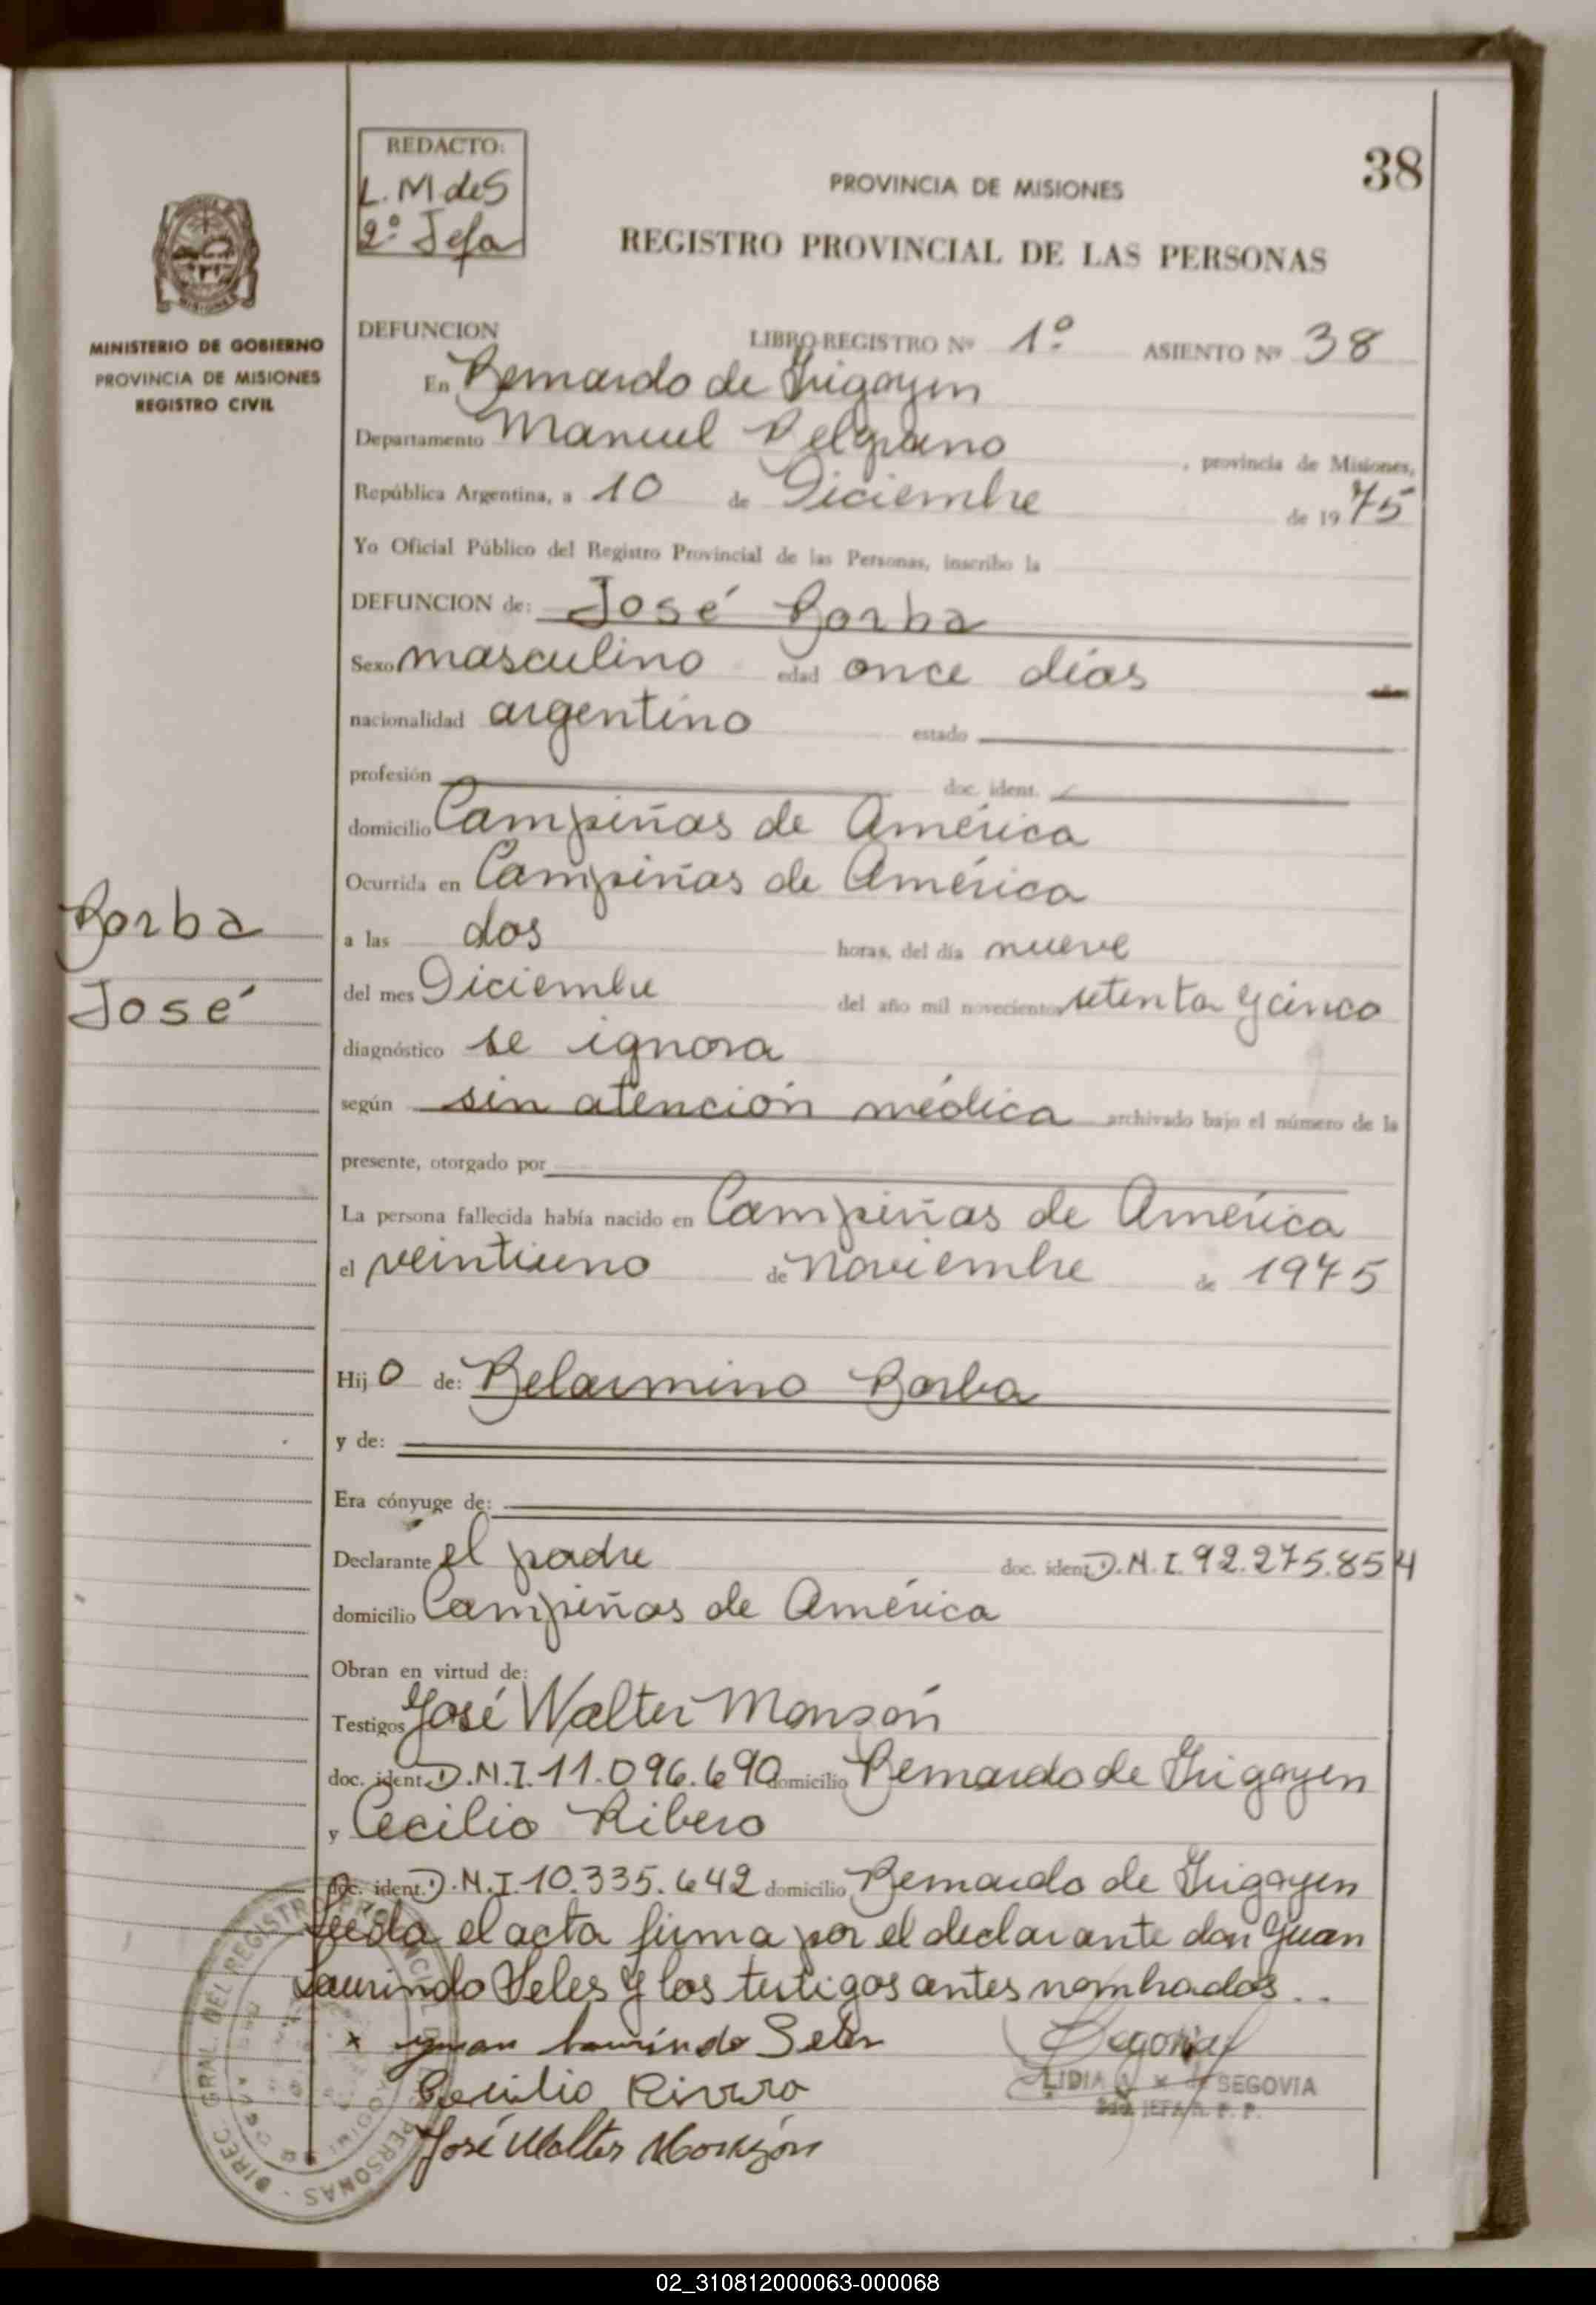 38
REDACTO:
L. M de S
2º Jefa
PROVINCIA DE MISIONES
REGISTRO PROVINCIAL DE LAS PERSONAS
MINISTERIO DE GOBIERNO
PROVINCIA DE MISIONES
REGISTRO CIVIL
DEFUNCION LIBRO REGISTRO Nº 1º ASIENTO Nº 38
En Bernardo de Irigoyen
Departamento Manuel Belgrano, provincia de Misiones,
República Argentina, a 10 de Diciembre de 1975
Yo Oficial Público del Registro Provincial de las Personas, inscribo la
DEFUNCION de: José Borba
Sexo masculino edad once días
nacionalidad argentino estado
profesión doc. ident.
domicilio Campiñas de América
Ocurrida en Campiñas de América
Borba
José
a las dos horas, del día nueve
del mes Diciembre del año mil novecientos setenta y cinco
diagnóstico se ignora
según sin atención médica archivado bajo el número de la
presente, otorgado por
La persona fallecida había nacido en Campiñas de América
el veintiuno de noviembre de 1975
Hijo de: Belarmino Borba
y de:
Era cónyuge de:
Declarante el padre doc. ident. D.N.I. 92.275.854
domicilio Campiñas de América
Obran en virtud de:
Testigos José Walter Monzón
doc. ident. D.N.I. 11.096.690 domicilio Bernardo de Irigoyen
y Cecilio Ribero
doc. ident. D.N.I. 10.335.642 domicilio Bernardo de Irigoyen
Leída el acta firma por el declarante don Juan
Laurindo Seles y los testigos antes nombrados..
x Juan Laurindo Seles
Segovia
Cecilio Rivero
LIDIA SEGOVIA
2da. JEFA R. P. P.
José Walter Monzón
DIREC. GRAL. DEL REGISTRO PROVINCIAL DE LAS PERSONAS
02_310812000063-000068